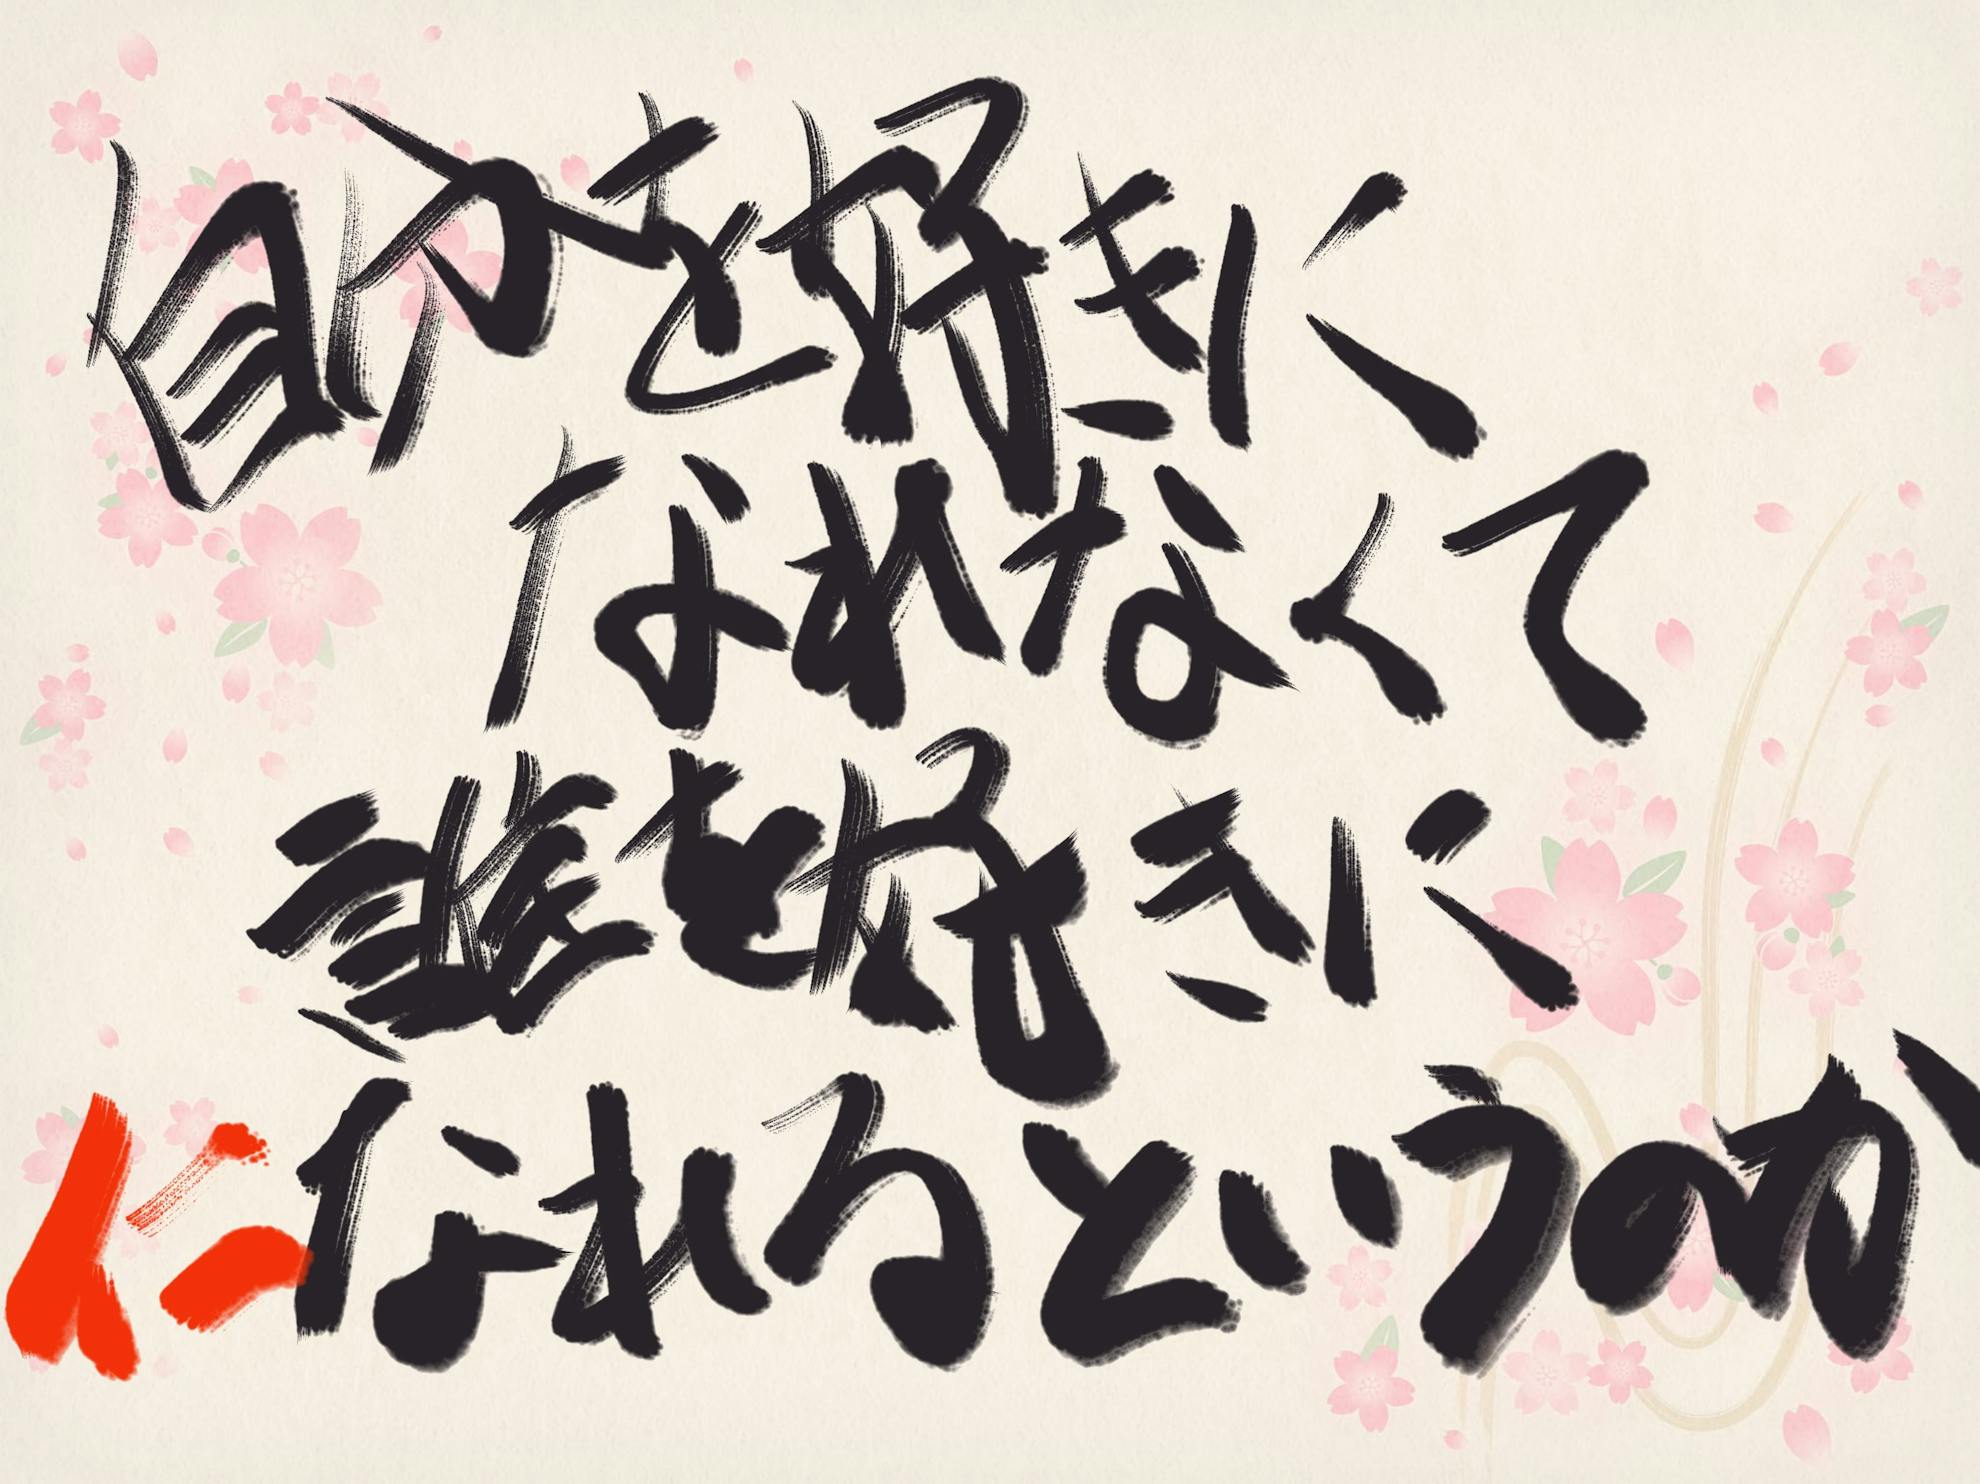 自分を好きに
なれなくて
誰を好きに
なれるというのか
仁